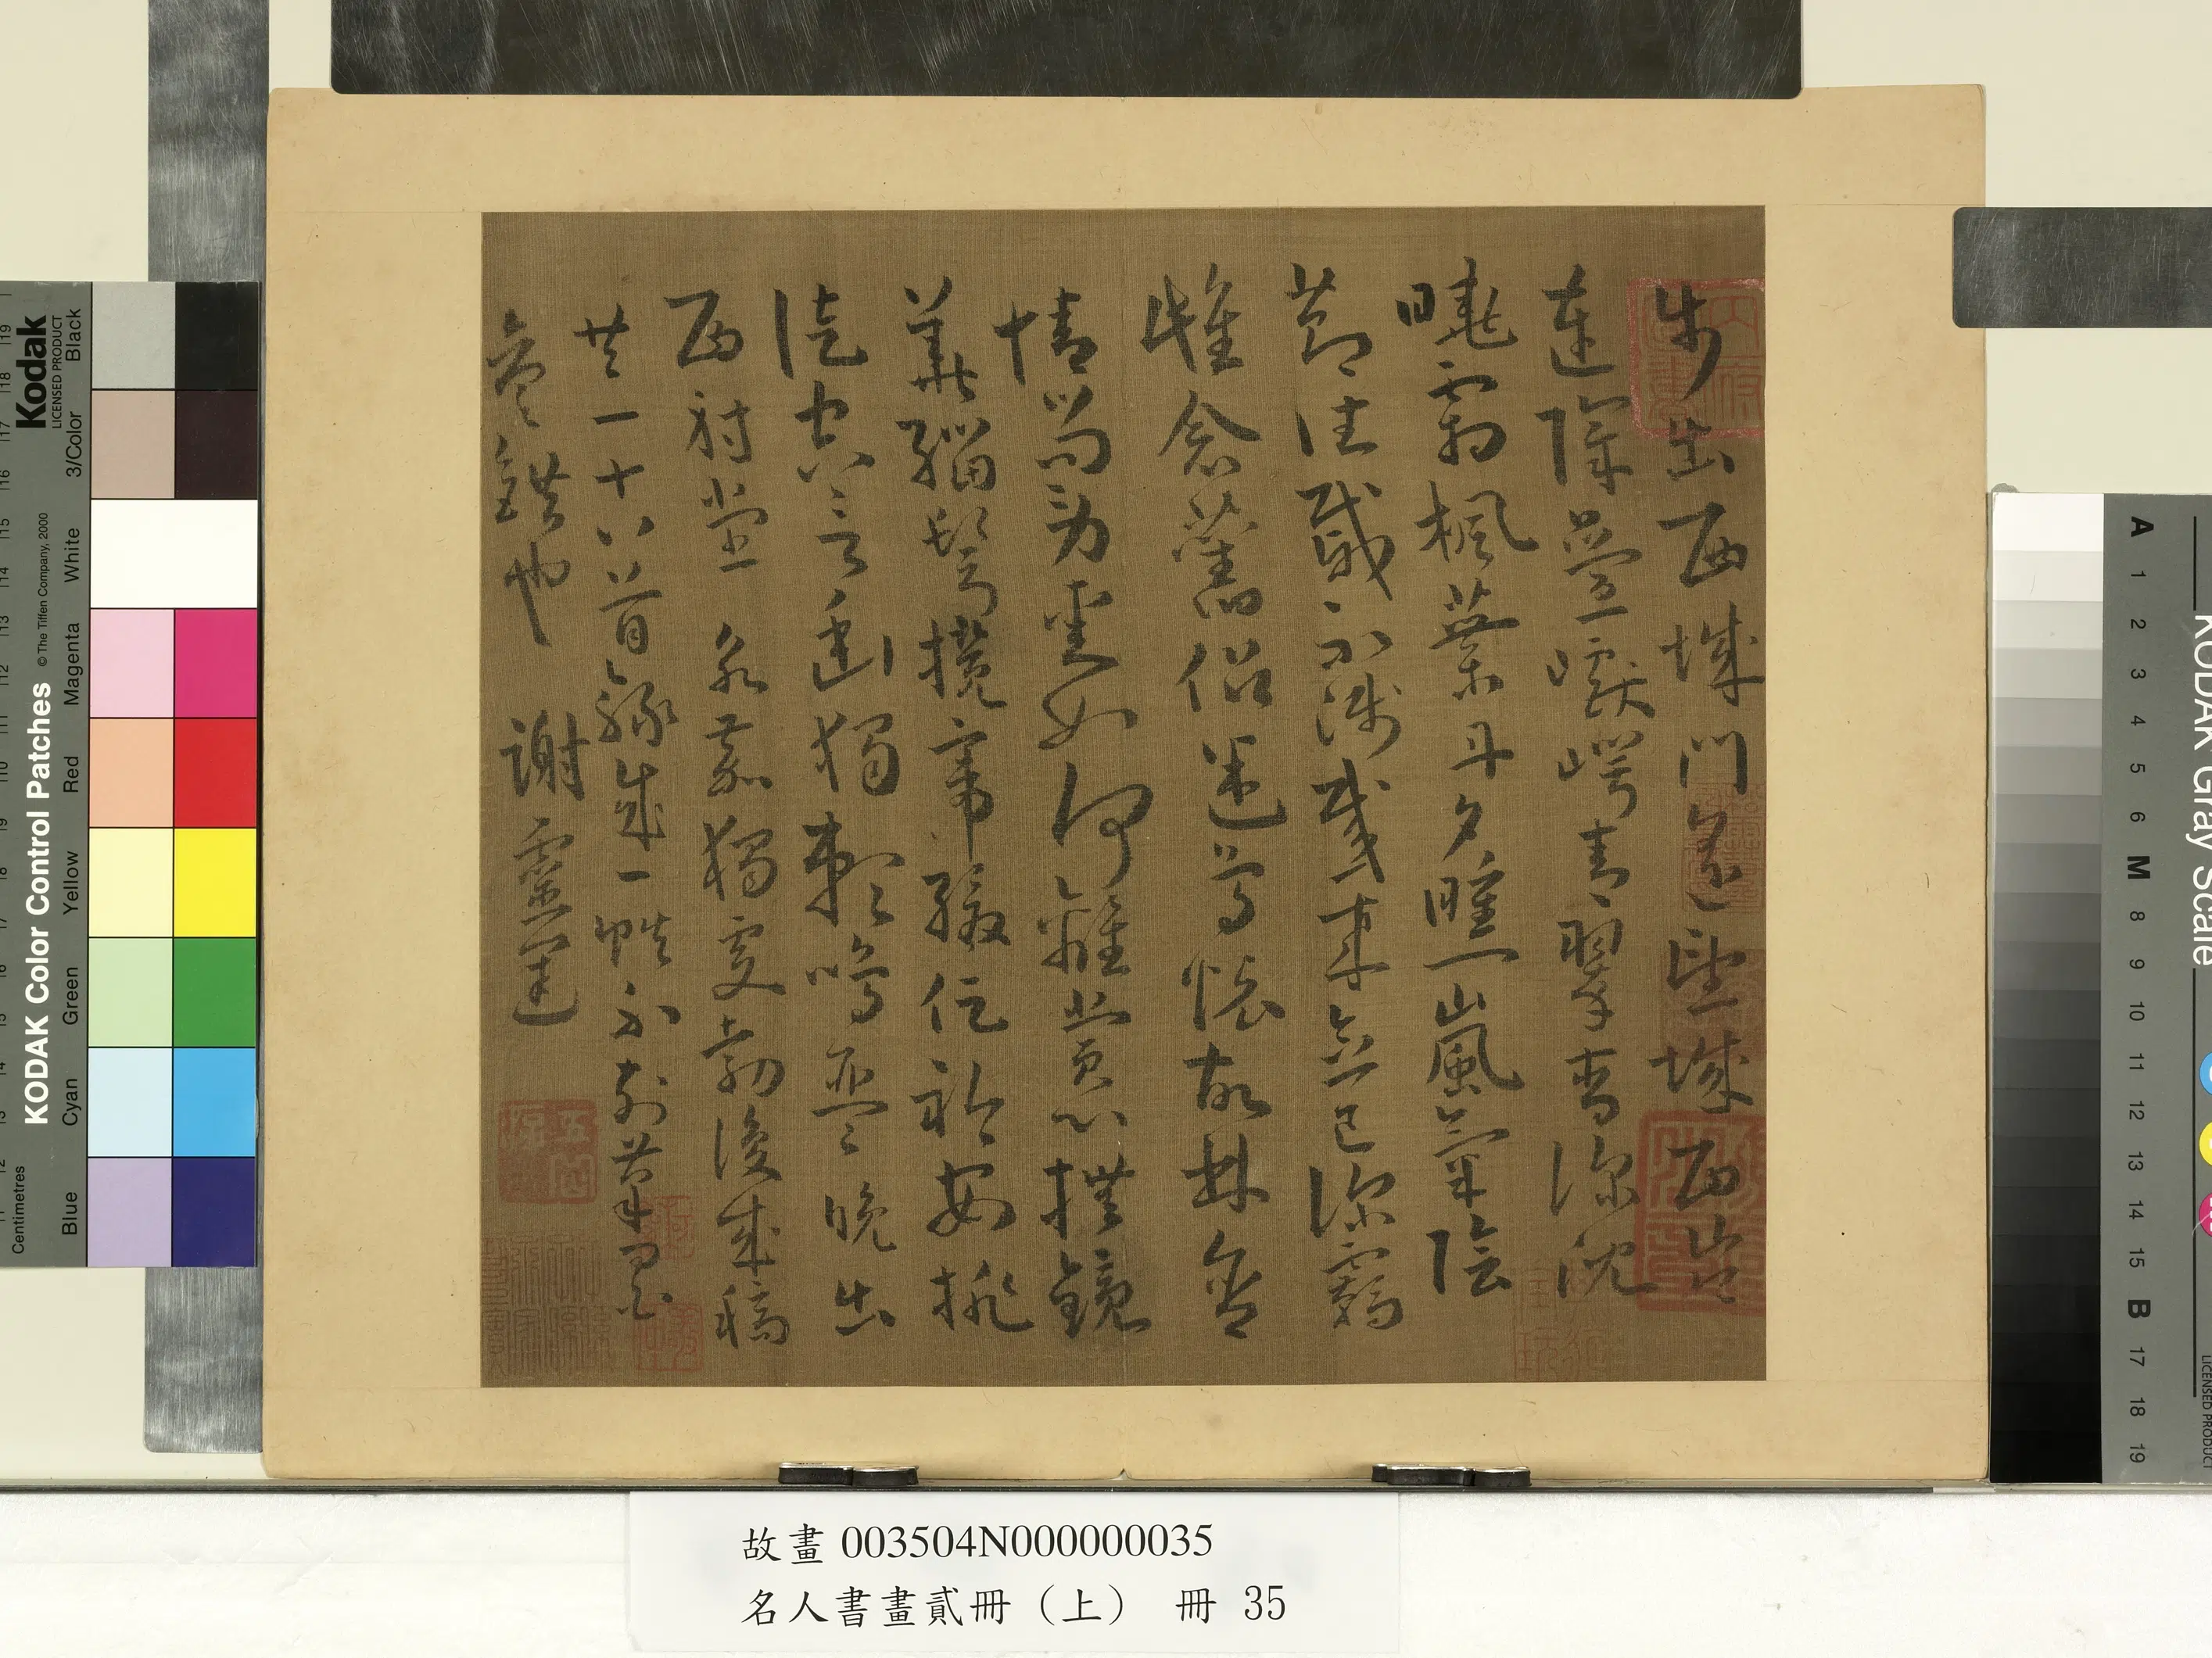 步出西城門遙望城西岑
連障疊巘崿青翠杳深沈
曉霜楓葉丹夕曛嵐氣陰
節往慼不淺感來念已深羈
雌念舊侶迷鳥懷故林含
情尚勞愛如何離賞心撫鏡
華緇鬢攬帶緩促衿安排
徒空言幽獨賴鳴琴 晚出
西射堂 永嘉獨處 後成稿
共一十六首錄成一帙不
錯也 謝靈運
故畫 003504N000000035
名人書畫貳冊（上） 冊 35
KODAK Color Control Patches
© The Tiffen Company, 2000
Kodak
LICENSED PRODUCT
Centimetres
Blue Cyan Green Yellow Red Magenta White 3/Color Black
KODAK Gray Scale
A 1 2 3 4 5 6 M 8 9 10 11 12 13 14 15 B 17 18 19
LICENSED PRODUCT